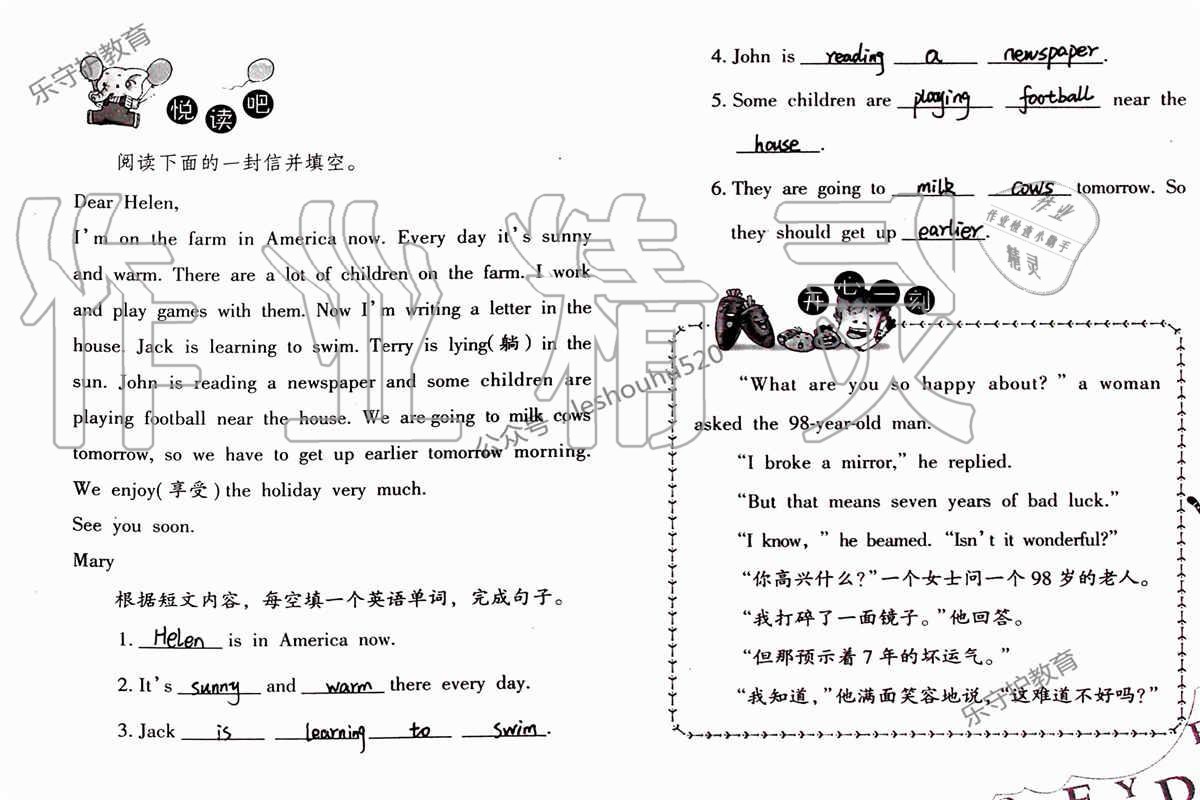 乐守护教育
悦读吧
阅读下面的一封信并填空。
Dear Helen,
I'm on the farm in America now. Every day it's sunny
and warm. There are a lot of children on the farm. I work
and play games with them. Now I'm writing a letter in the
house. Jack is learning to swim. Terry is lying(躺) in the
sun. John is reading a newspaper and some children are
playing football near the house. We are going to milk cows
tomorrow, so we have to get up earlier tomorrow morning.
We enjoy(享受)the holiday very much.
See you soon.
Mary
根据短文内容,每空填一个英语单词,完成句子。
1. Helen is in America now.
2. It's sunny and warm there every day.
3. Jack is learning to swim.
4. John is reading a newspaper.
5. Some children are playing football near the
house.
6. They are going to milk cows tomorrow. So
they should get up earlier.
作业
作业检查小助手
精灵
作业精灵
公众号:leshouhu520
开七二刻
"What are you so happy about?" a woman
asked the 98-year-old man.
"I broke a mirror," he replied.
"But that means seven years of bad luck."
"I know," he beamed. "Isn't it wonderful?"
"你高兴什么?"一个女士问一个98岁的老人。
"我打碎了一面镜子。"他回答。
"但那预示着7年的坏运气。"
"我知道,"他满面笑容地说,"这难道不好吗?"
乐守护教育